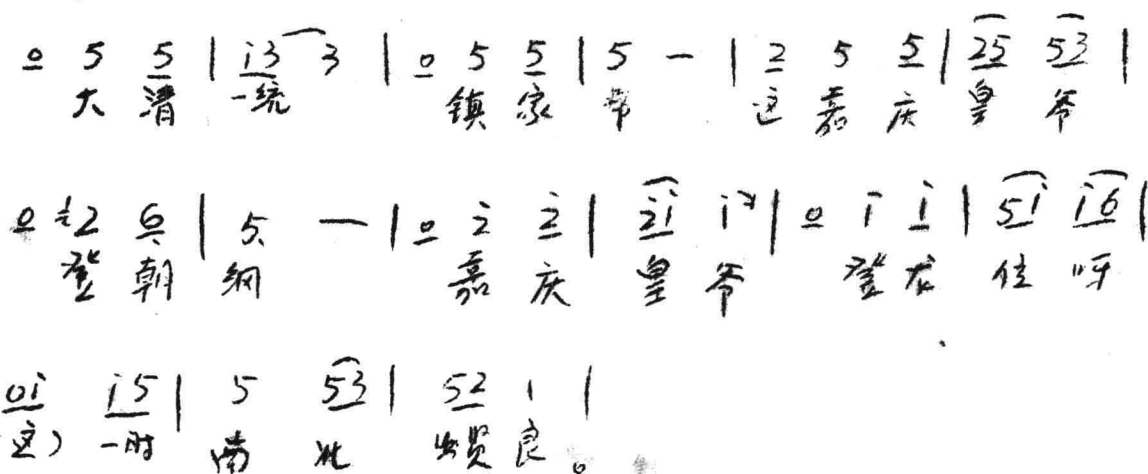 0 5 5 | i3 3 | 0 5 5 | 5 — | 2 5 5 | 25 53 |
大 清 一统 镇 家 邦 这 嘉 庆 皇 爷
0 2 6 | 5 — | 0 2 2 | 2i i | 0 i i | 5i i6 |
登 朝 纲 嘉 庆 皇 爷 登 龙 位 呀
0i i5 | 5 53 | 52 1 |
这) 一时 南 北 出贤 良。